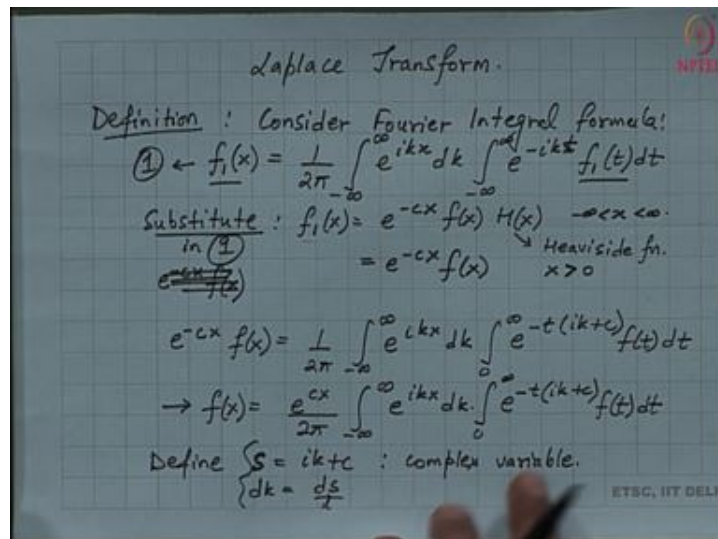 Laplace Transform.
NPTEL
Definition : Consider Fourier Integral formula:
① ← f₁(x) = 1/2π ∫_{-∞}^{∞} e^{ikx} dk ∫_{-∞}^{∞} e^{-ikt} f₁(t) dt
Substitute : f₁(x) = e^{-cx} f(x) H(x) -∞<x<∞.
in ① ↘ Heaviside fn.
= e^{-cx} f(x) x>0
e^{-cx} f(x) = 1/2π ∫_{-∞}^{∞} e^{ikx} dk ∫_{0}^{∞} e^{-t(ik+c)} f(t) dt
→ f(x) = e^{cx}/2π ∫_{-∞}^{∞} e^{ikx} dk. ∫_{0}^{∞} e^{-t(ik+c)} f(t) dt
Define { s = ik+c : complex variable.
{ dk = ds/i
ETSC, IIT DEL